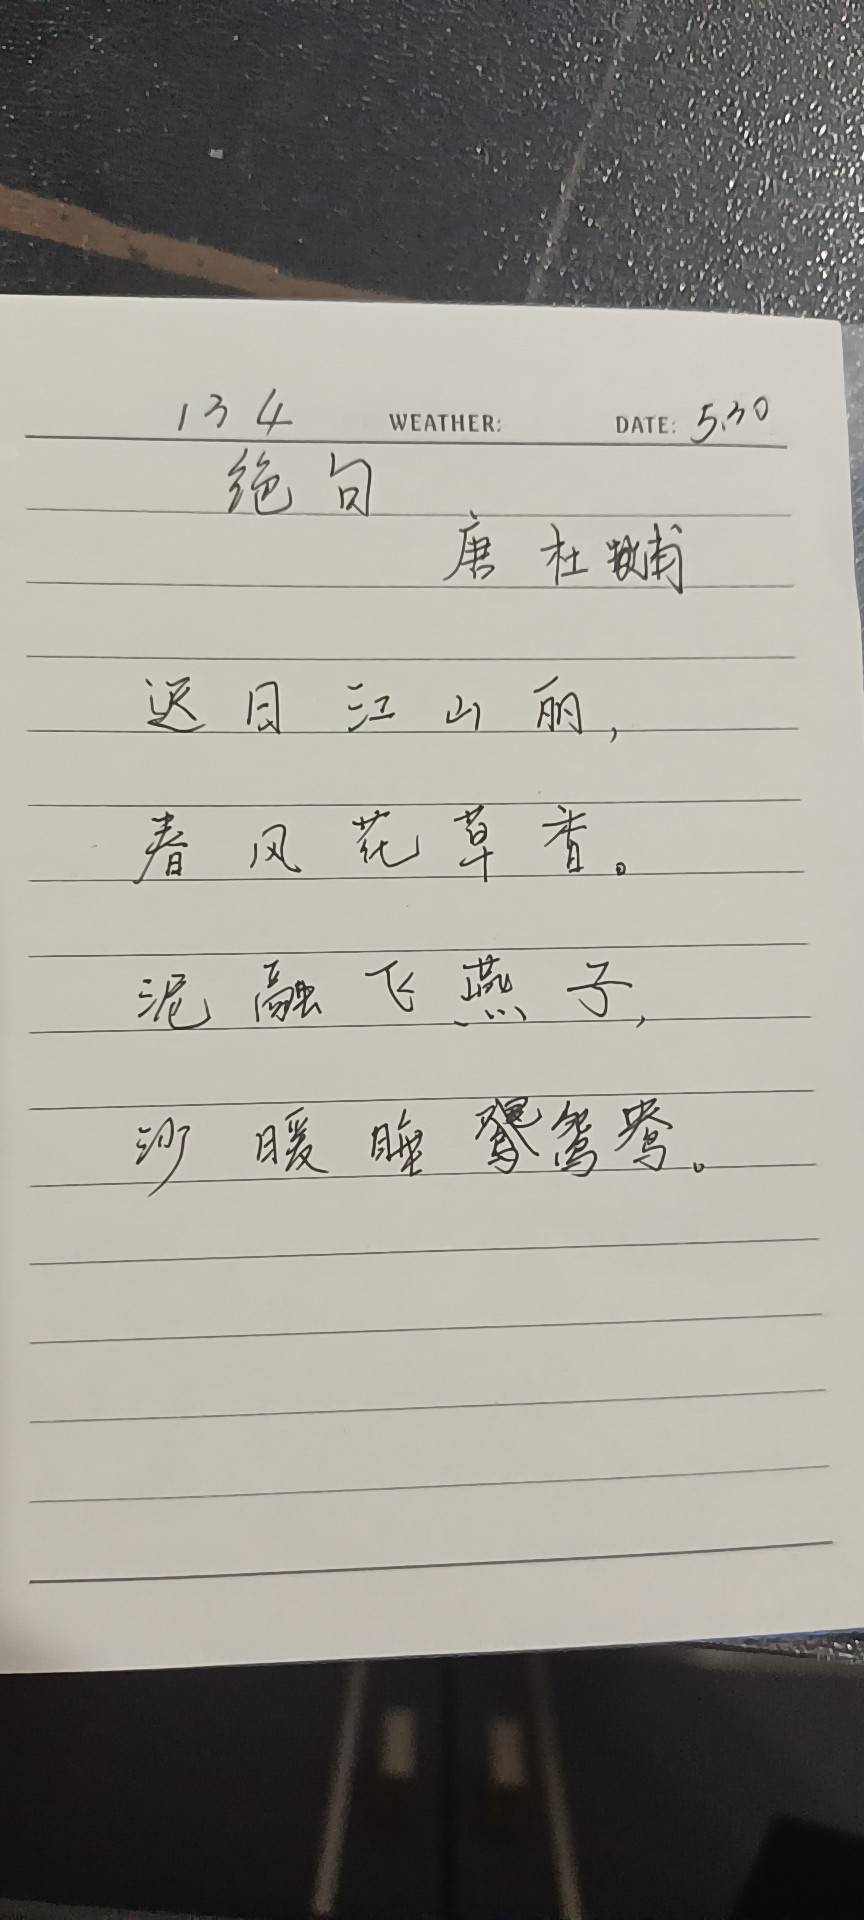 134 WEATHER: DATE: 5.30
绝句
唐 杜甫
迟日江山丽,
春风花草香。
泥融飞燕子,
沙暖睡鸳鸯。